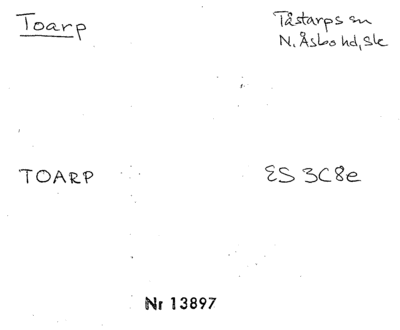 Toarp
Tåstarps sn
N. Åsbo hd, Sk
TOARP
ES 3C8e
Nr 13897